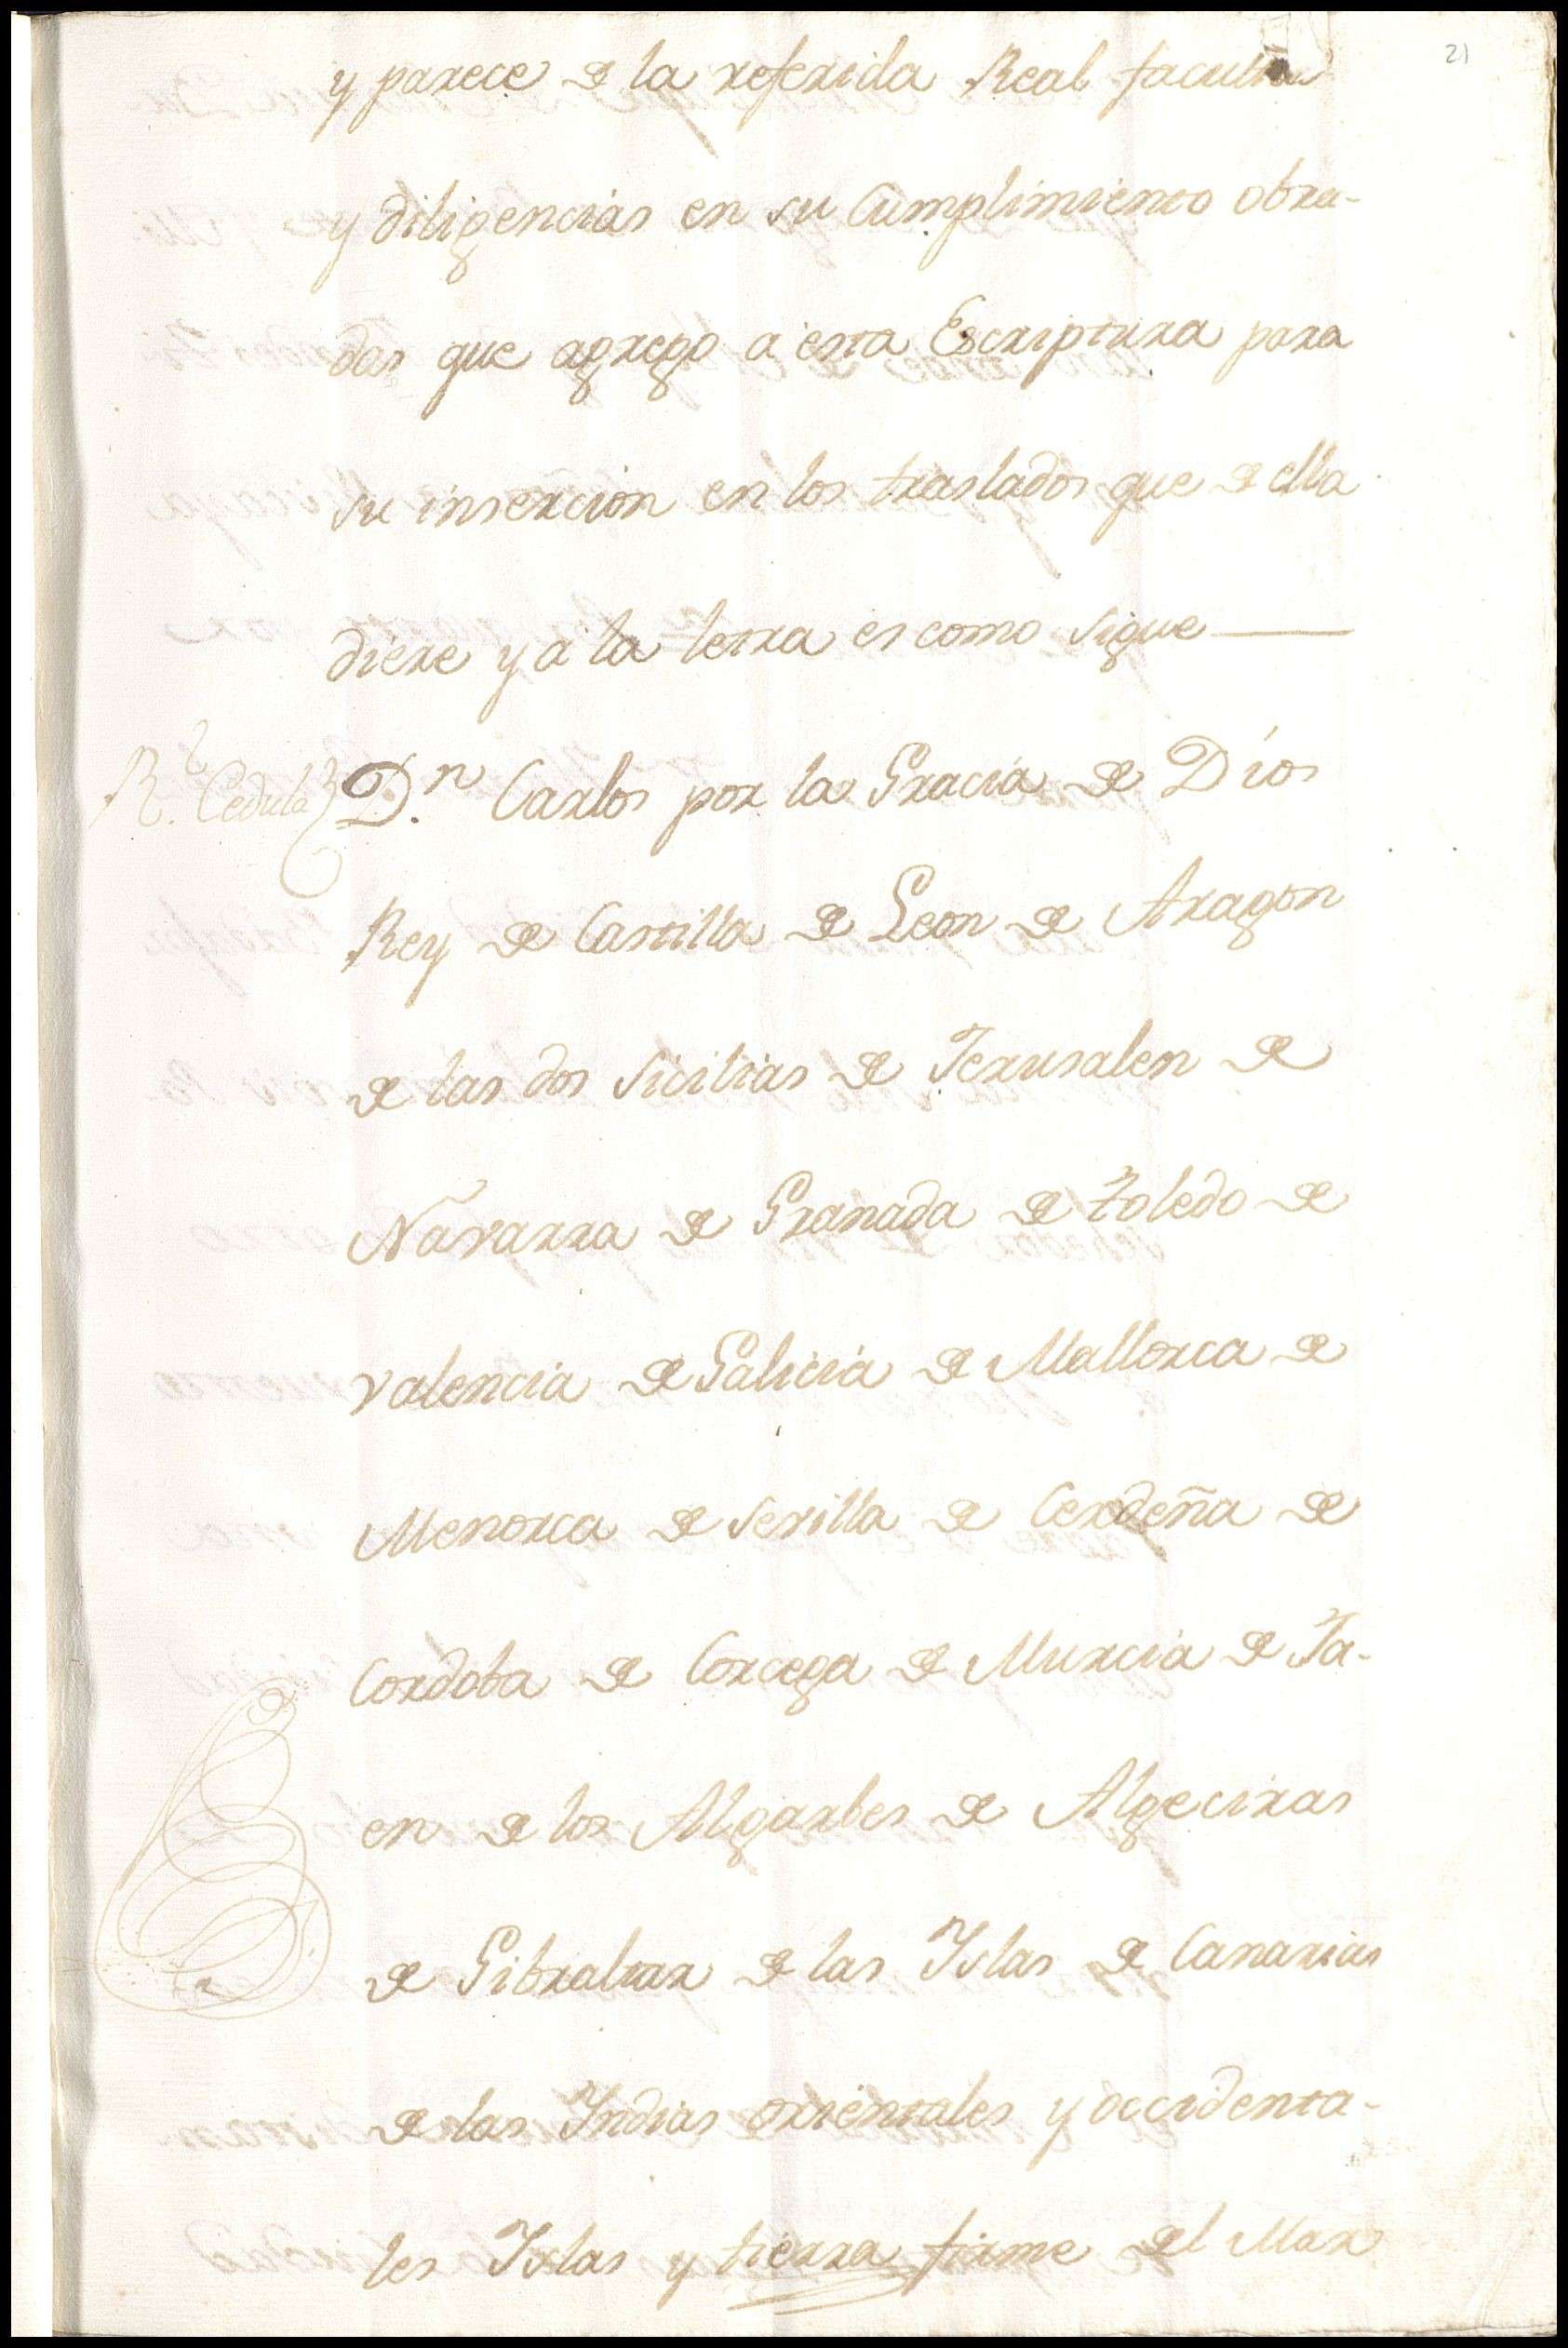 21
y parece de la referida Real facultad
y diligencias en su Cumplimiento obra-
das que agrego a esta Escriptura para
su insercion en los traslados que de ella
diere y a la letra es como sigue
Rl. Cedula
Dn. Carlos por la Gracia de Dios
Rey de Castilla de Leon de Aragon
de las dos Sicilias de Jerusalen de
Navarra de Granada de Toledo de
Valencia de Galicia de Mallorca de
Menorca de Sevilla de Cerdeña de
Cordoba de Corcega de Murcia de Ja-
en de los Algarbes de Algeciras
de Gibraltar de las Yslas de Canarias
de las Yndias orientales y occidenta-
les Yslas y tierra firme del Mar